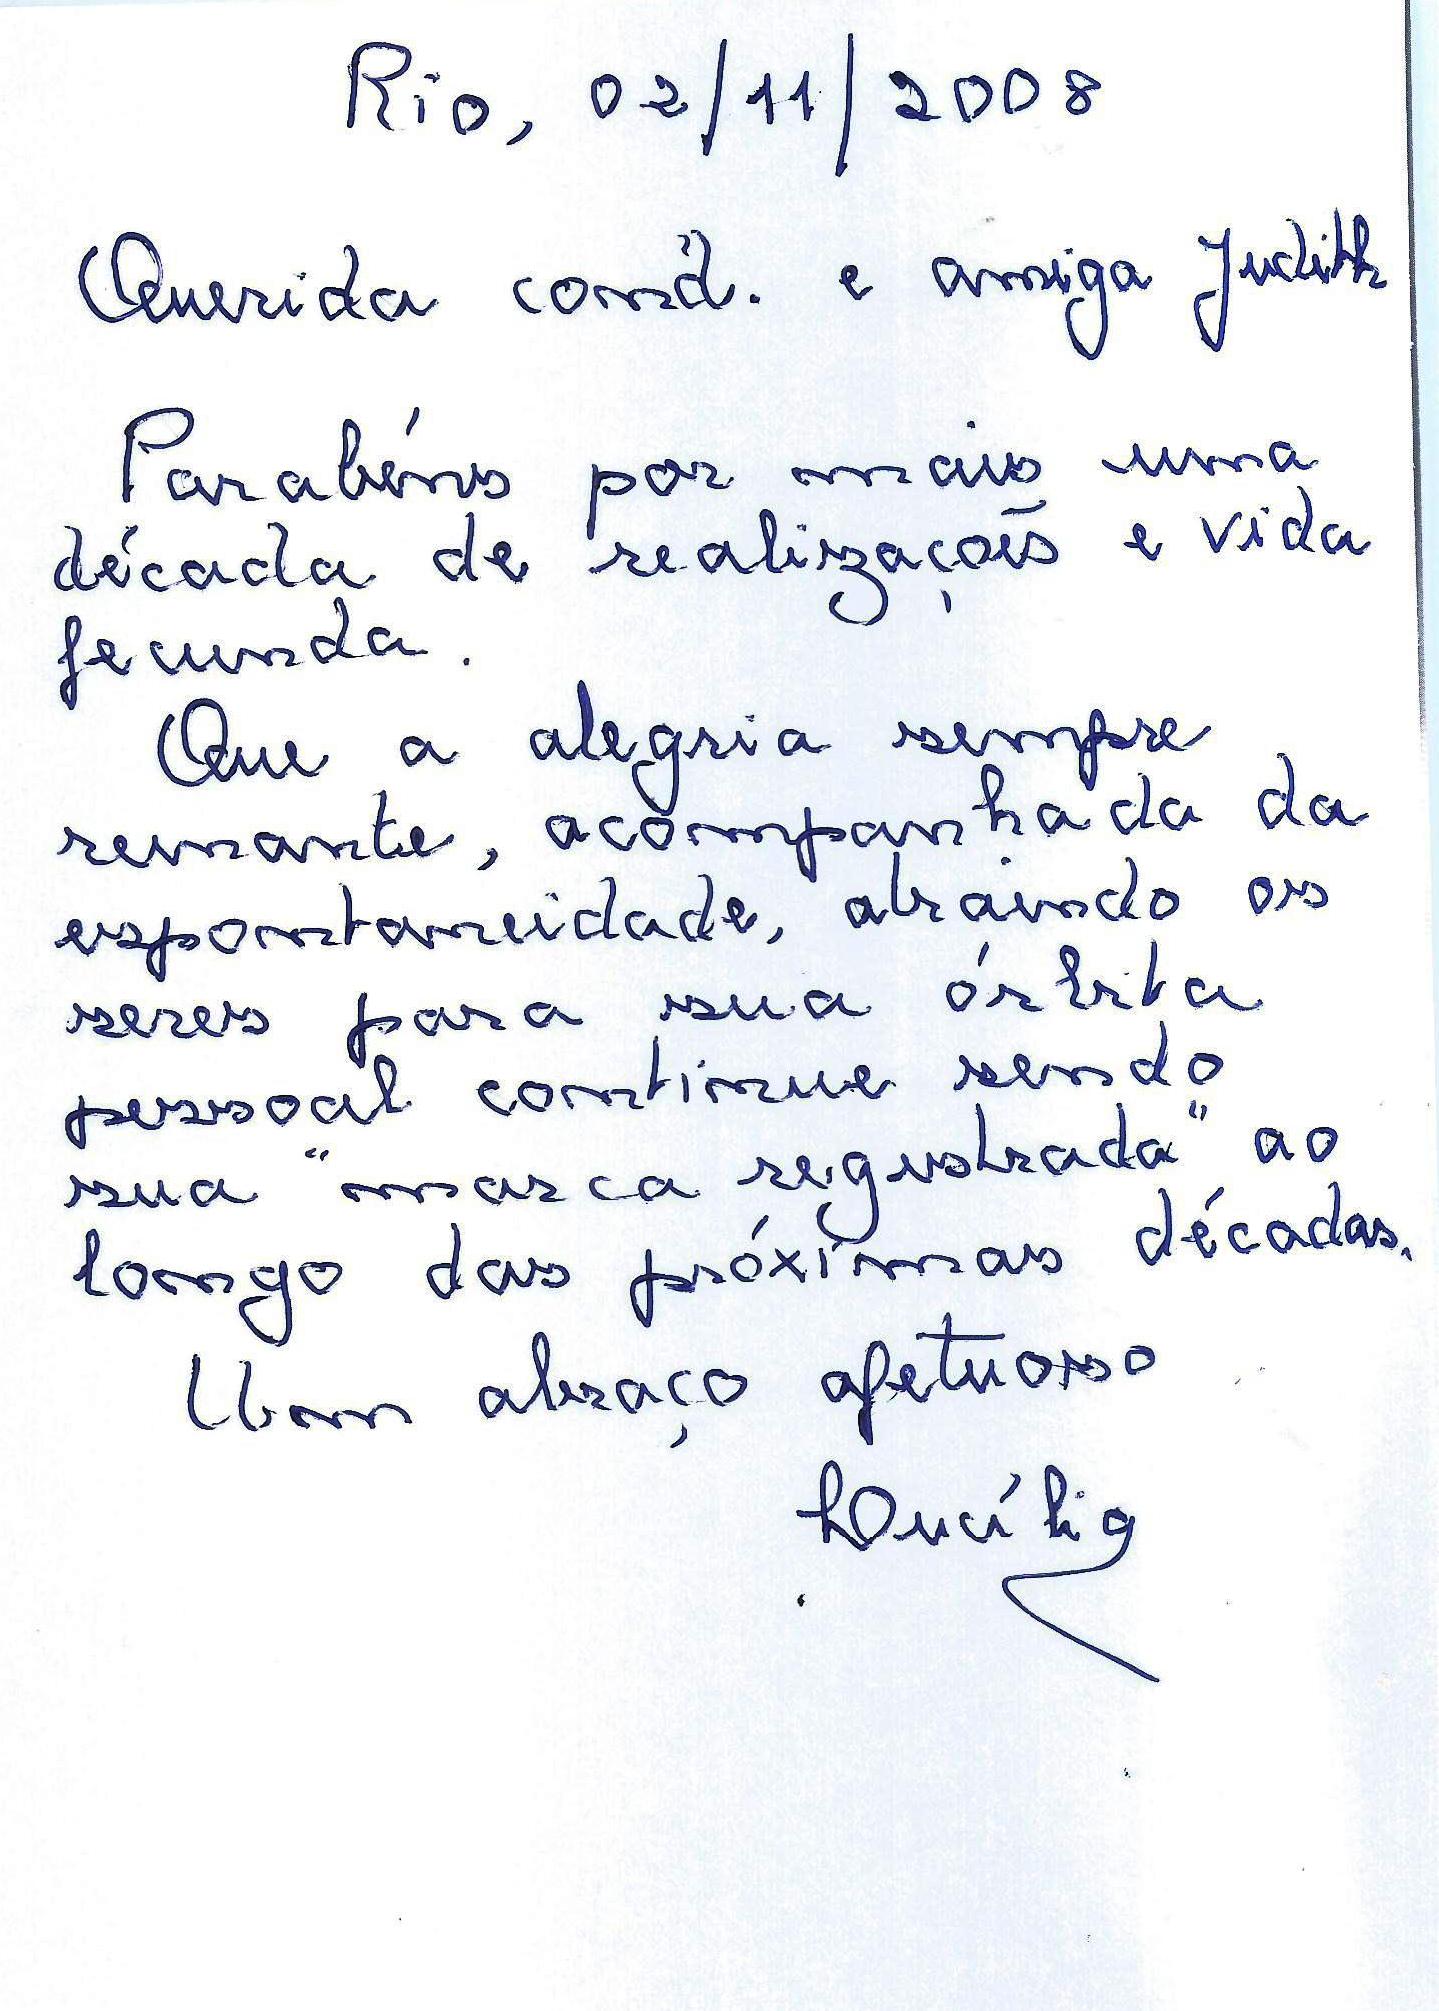 Rio, 02/11/2008
Querida e amiga Judith
Parabéns por mais uma
década de realizações e vida
fecunda.
Que a alegria sempre
reinante, acompanhada da
espontaneidade, atraindo os
seres para sua órbita
pessoal continue sendo
sua "marca registrada" ao
longo das próximas décadas.
Um abraço afetuoso